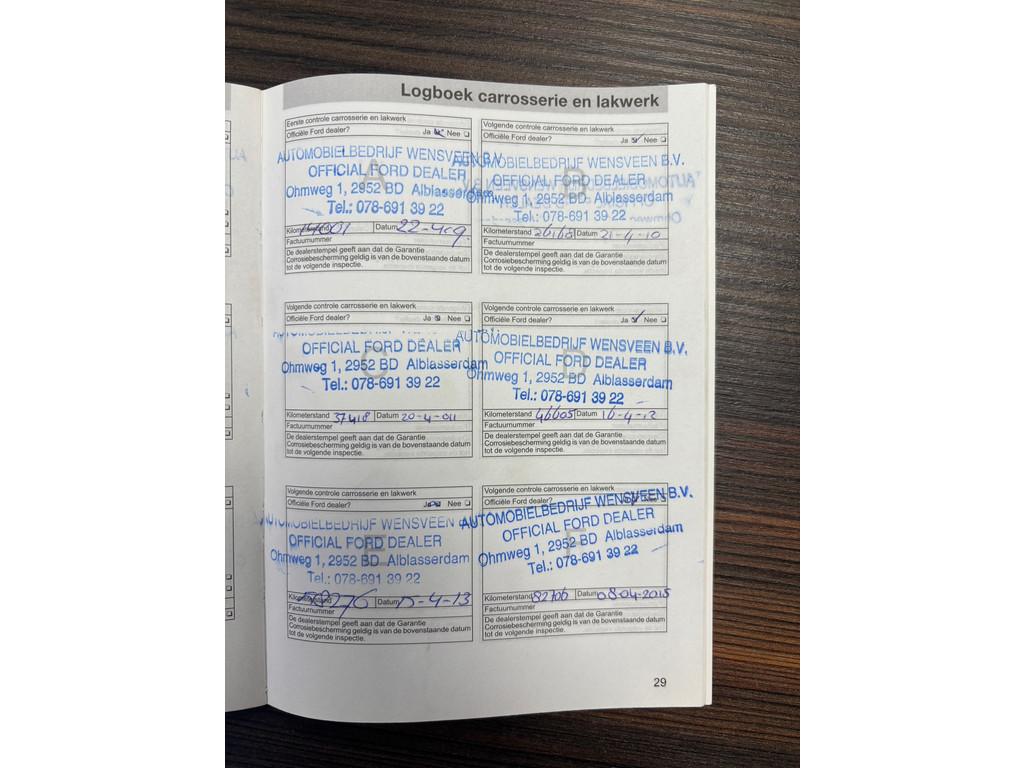 Logboek carrosserie en lakwerk
Eerste controle carrosserie en lakwerk
Officiële Ford dealer? Ja Nee
A
AUTOMOBIELBEDRIJF WENSVEEN B.V.
OFFICIAL FORD DEALER
Ohmweg 1, 2952 BD Alblasserdam
Tel.: 078-691 39 22
Kilometerstand Datum 22-4-09
Factuurnummer
De dealerstempel geeft aan dat de Garantie
Corrosiebescherming geldig is van de bovenstaande datum
tot de volgende inspectie.
Volgende controle carrosserie en lakwerk
Officiële Ford dealer? Ja Nee
B
AUTOMOBIELBEDRIJF WENSVEEN B.V.
OFFICIAL FORD DEALER
Ohmweg 1, 2952 BD Alblasserdam
Tel.: 078-691 39 22
Kilometerstand 26168 Datum 21-4-10
Factuurnummer
De dealerstempel geeft aan dat de Garantie
Corrosiebescherming geldig is van de bovenstaande datum
tot de volgende inspectie.
Volgende controle carrosserie en lakwerk
Officiële Ford dealer? Ja Nee
C
OFFICIAL FORD DEALER
Ohmweg 1, 2952 BD Alblasserdam
Tel.: 078-691 39 22
Kilometerstand 37418 Datum 20-4-011
Factuurnummer
De dealerstempel geeft aan dat de Garantie
Corrosiebescherming geldig is van de bovenstaande datum
tot de volgende inspectie.
Volgende controle carrosserie en lakwerk
Officiële Ford dealer? Ja Nee
D
AUTOMOBIELBEDRIJF WENSVEEN B.V.
OFFICIAL FORD DEALER
Ohmweg 1, 2952 BD Alblasserdam
Tel.: 078-691 39 22
Kilometerstand 46605 Datum 16-4-12
Factuurnummer
De dealerstempel geeft aan dat de Garantie
Corrosiebescherming geldig is van de bovenstaande datum
tot de volgende inspectie.
Volgende controle carrosserie en lakwerk
Officiële Ford dealer? Ja Nee
E
AUTOMOBIELBEDRIJF WENSVEEN
OFFICIAL FORD DEALER
Ohmweg 1, 2952 BD Alblasserdam
Tel.: 078-691 39 22
Kilometerstand 58276 Datum 15-4-13
Factuurnummer
De dealerstempel geeft aan dat de Garantie
Corrosiebescherming geldig is van de bovenstaande datum
tot de volgende inspectie.
Volgende controle carrosserie en lakwerk
Officiële Ford dealer? Ja Nee
F
AUTOMOBIELBEDRIJF WENSVEEN B.V.
OFFICIAL FORD DEALER
Ohmweg 1, 2952 BD Alblasserdam
Tel.: 078-691 39 22
Kilometerstand 82706 Datum 08-04-2015
Factuurnummer
De dealerstempel geeft aan dat de Garantie
Corrosiebescherming geldig is van de bovenstaande datum
tot de volgende inspectie.
29